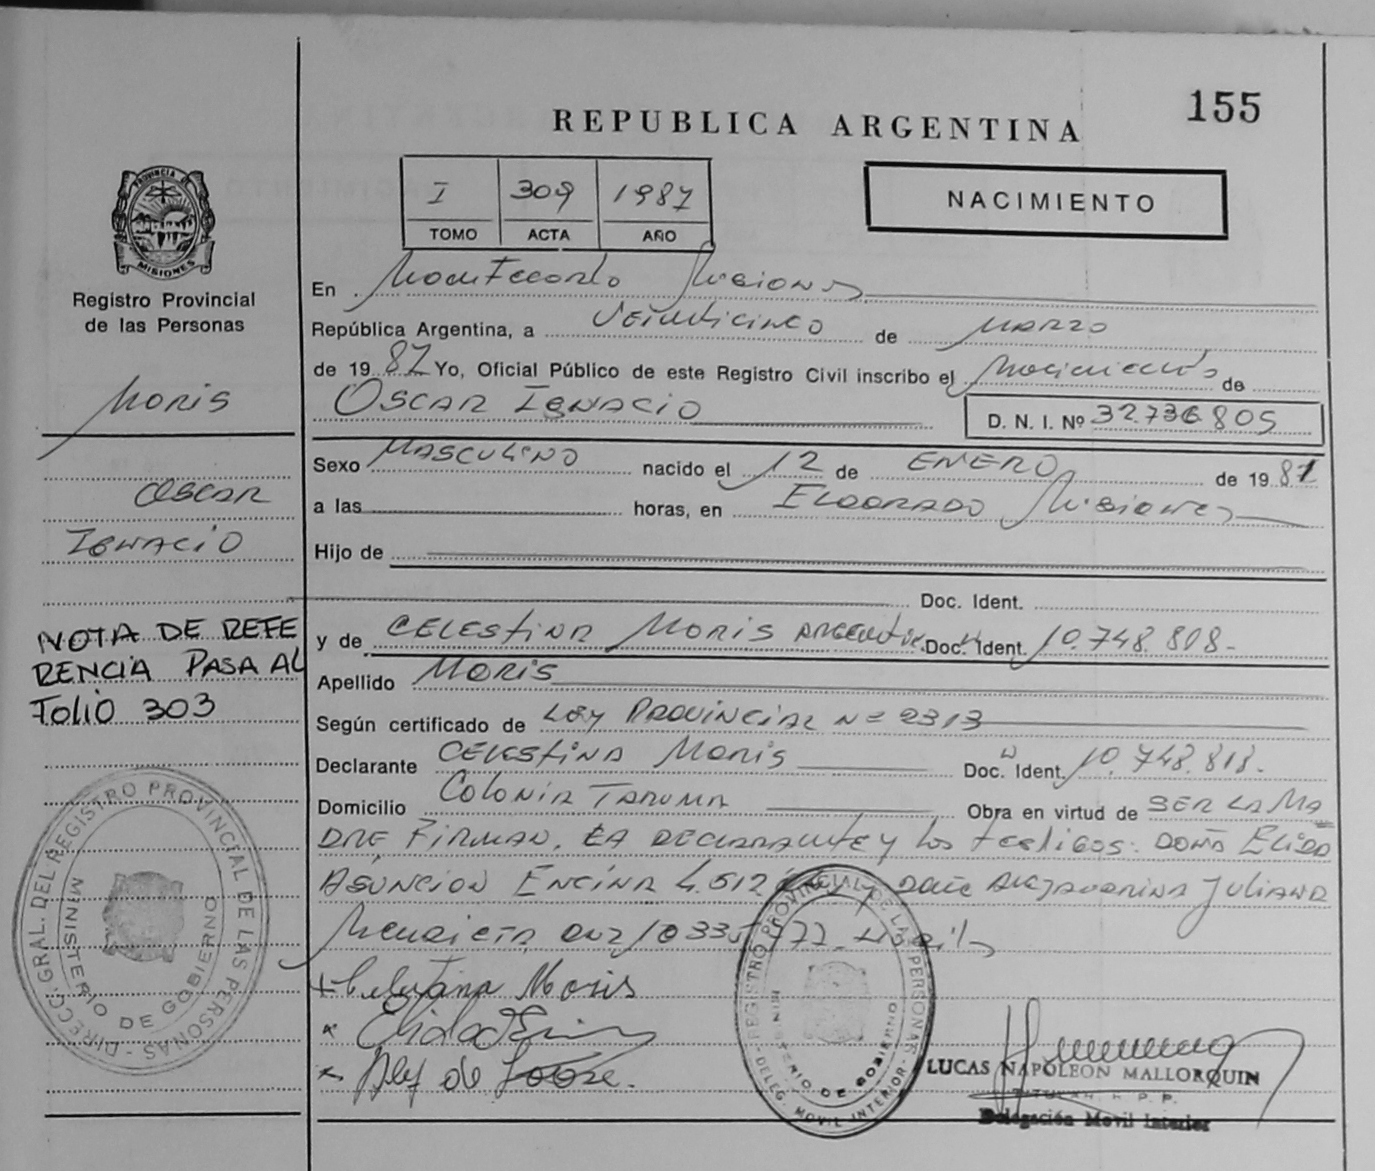 155
REPUBLICA ARGENTINA
I 309 1987
TOMO ACTA AÑO
NACIMIENTO
PROVINCIA DE
MISIONES
Registro Provincial
de las Personas
Moris
Oscar
Ignacio
NOTA DE REFE
RENCIA PASA AL
FOLIO 303
DIRECC. GRAL. DEL REGISTRO PROVINCIAL DE LAS PERSONAS
MINISTERIO DE GOBIERNO
En Montecarlo Misiones
República Argentina, a Veinticinco de Marzo
de 1987 Yo, Oficial Público de este Registro Civil inscribo el Nacimiento de
OSCAR IGNACIO D. N. I. Nº 32.736.805
Sexo MASCULINO nacido el 12 de ENERO de 1987
a las horas, en ELDORADO Misiones
Hijo de
Doc. Ident.
y de CELESTINA MORIS Doc. Ident. 10.748.818-
Apellido MORIS
Según certificado de LEY PROVINCIAL Nº 2313
Declarante CELESTINA MORIS Doc. Ident. 10.748.818-
Domicilio COLONIA TARUMA Obra en virtud de SER LA MA
DRE FIRMAN, LA DECLARANTE y los testigos: DOÑA ELIDA
ASUNCION ENCINA 4.512 JULIANA
Mendieta
Celestina Moris
LUCAS NAPOLEON MALLORQUIN
Delegación Movil Interior
REGISTRO PROVINCIAL DE LAS PERSONAS
MINISTERIO DE GOBIERNO
DELEG. MOVIL INTERIOR